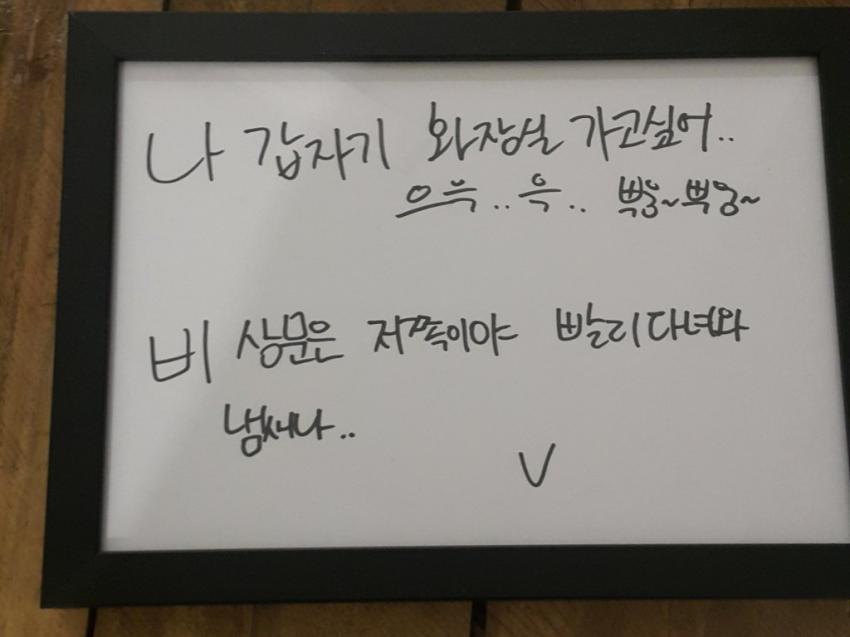 나 갑자기 화장실 가고싶어..
으윽..윽.. 뿍웅~뿍웅~
비 상문은 저쪽이야 빨리다녀와
냄새나..
V